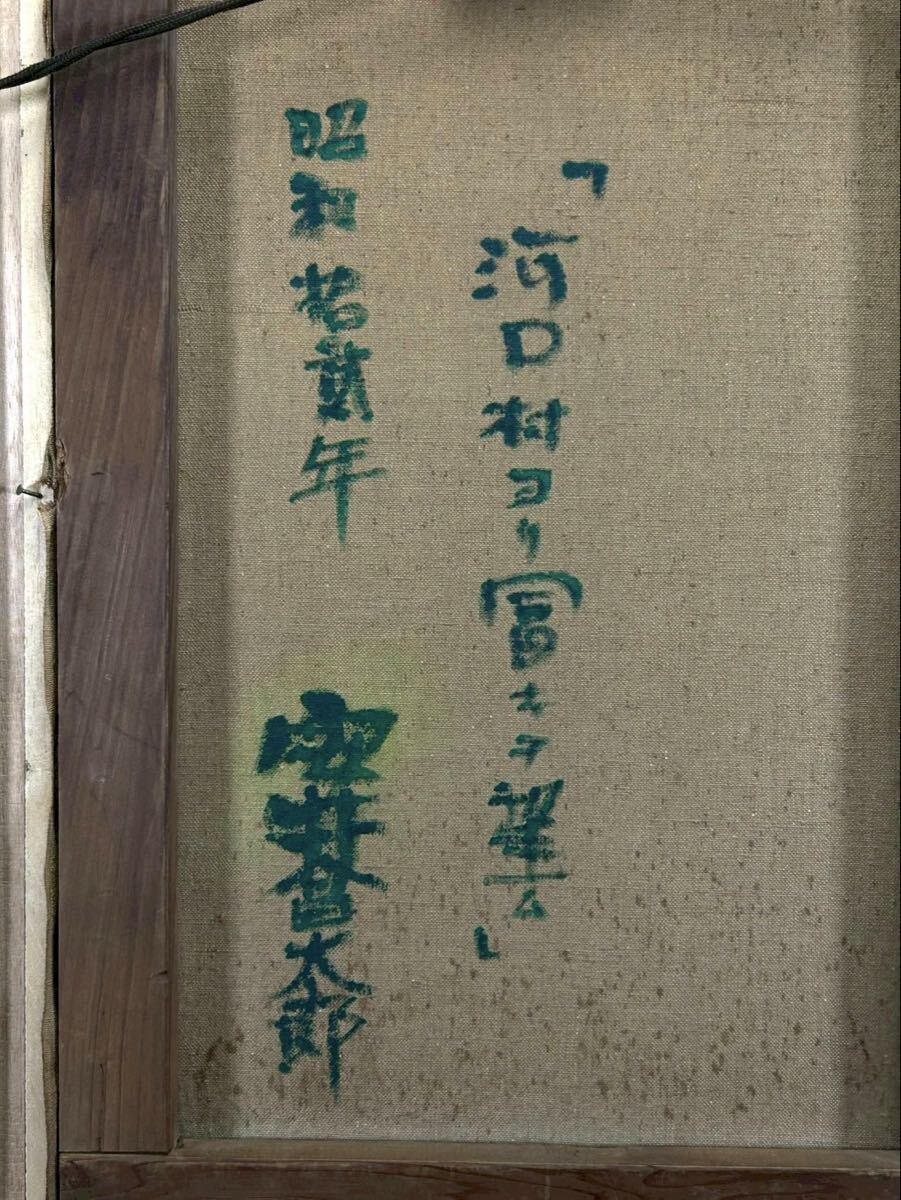 「河口村ヨリ冨士ヲ望ム」
昭和拾貳年 安井曽太郎